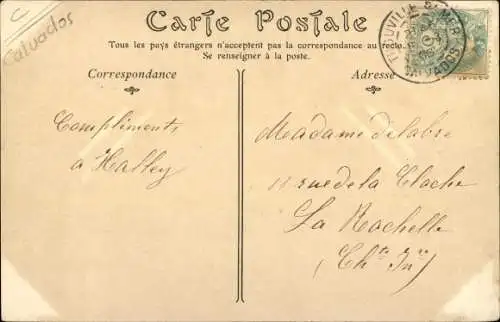 Calvados
Carte Postale
Tous les pays étrangers n'acceptent pas la correspondance au recto.
Se renseigner à la poste.
Correspondance
Adresse
TROUVILLE S. MER
CALVADOS
Compliments
a Halley
Madame Delabre
11 rue de la Cloche
La Rochelle
(Chte Infre)